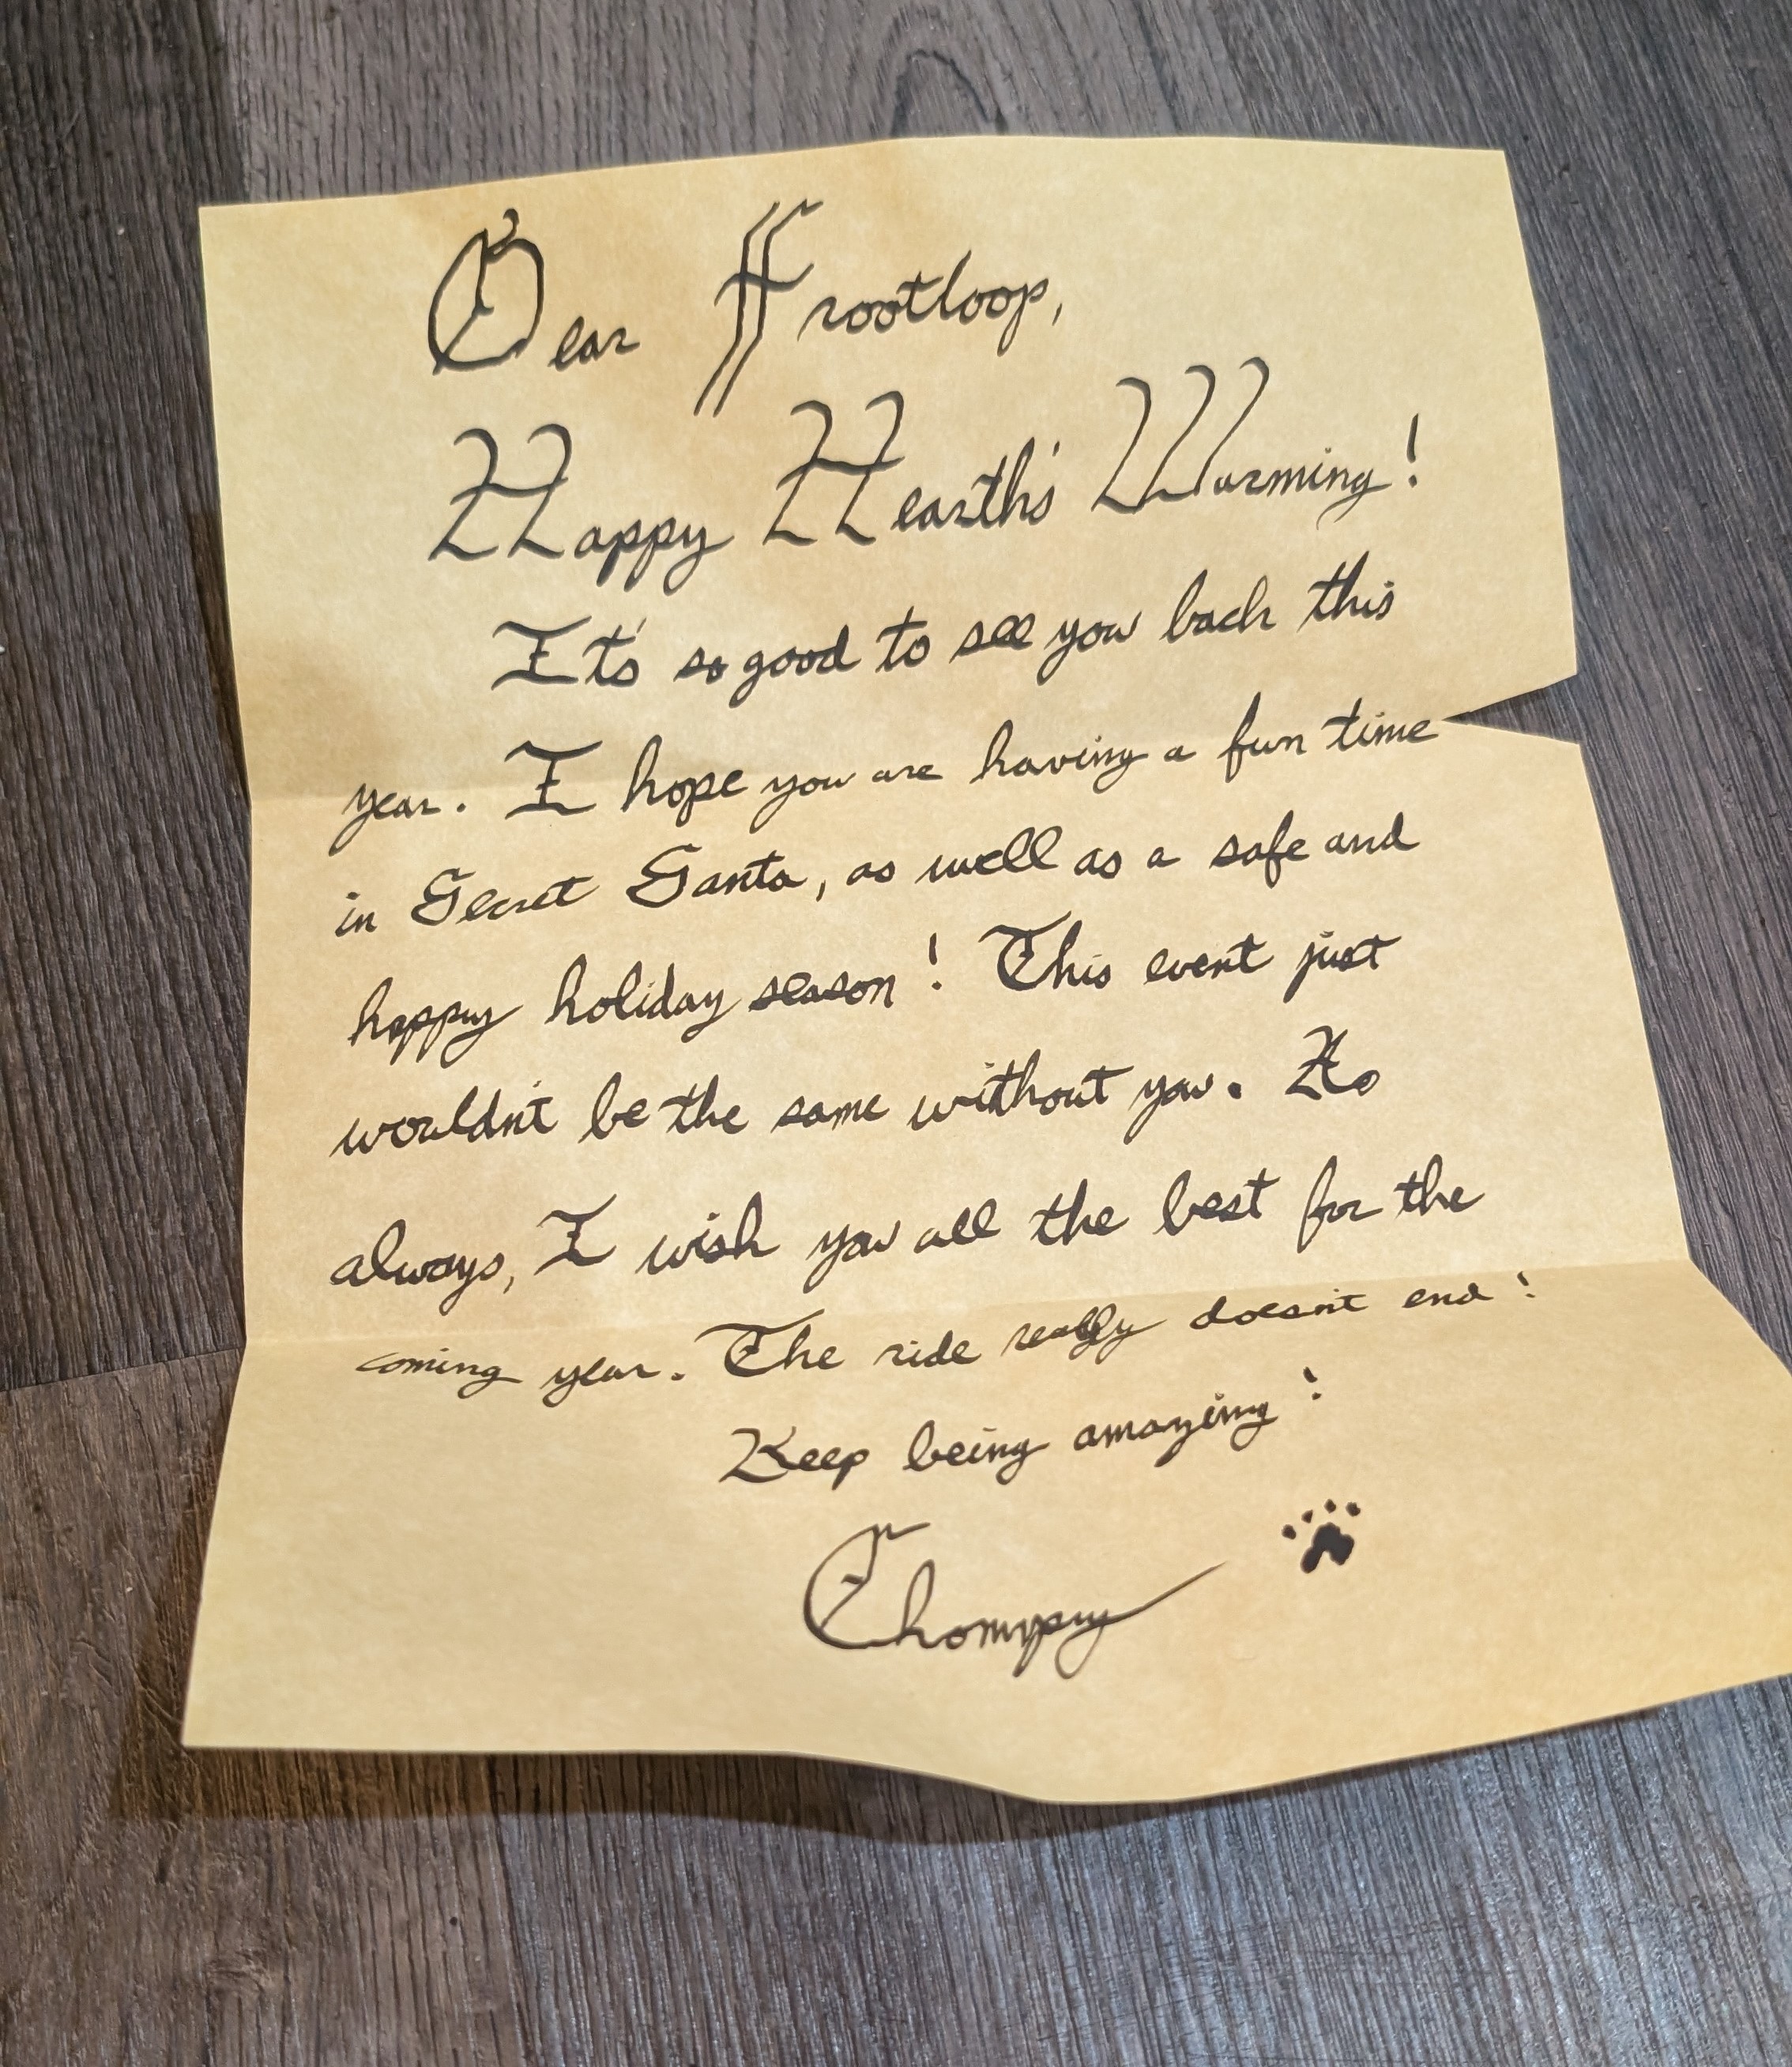 Dear Frootloop,
Happy Hearth's Warming!
It's so good to see you back this
year. I hope you are having a fun time
in Secret Santa, as well as a safe and
happy holiday season! This event just
wouldn't be the same without you. As
always, I wish you all the best for the
coming year. The ride really doesn't end!
Keep being amazing!
Chompy